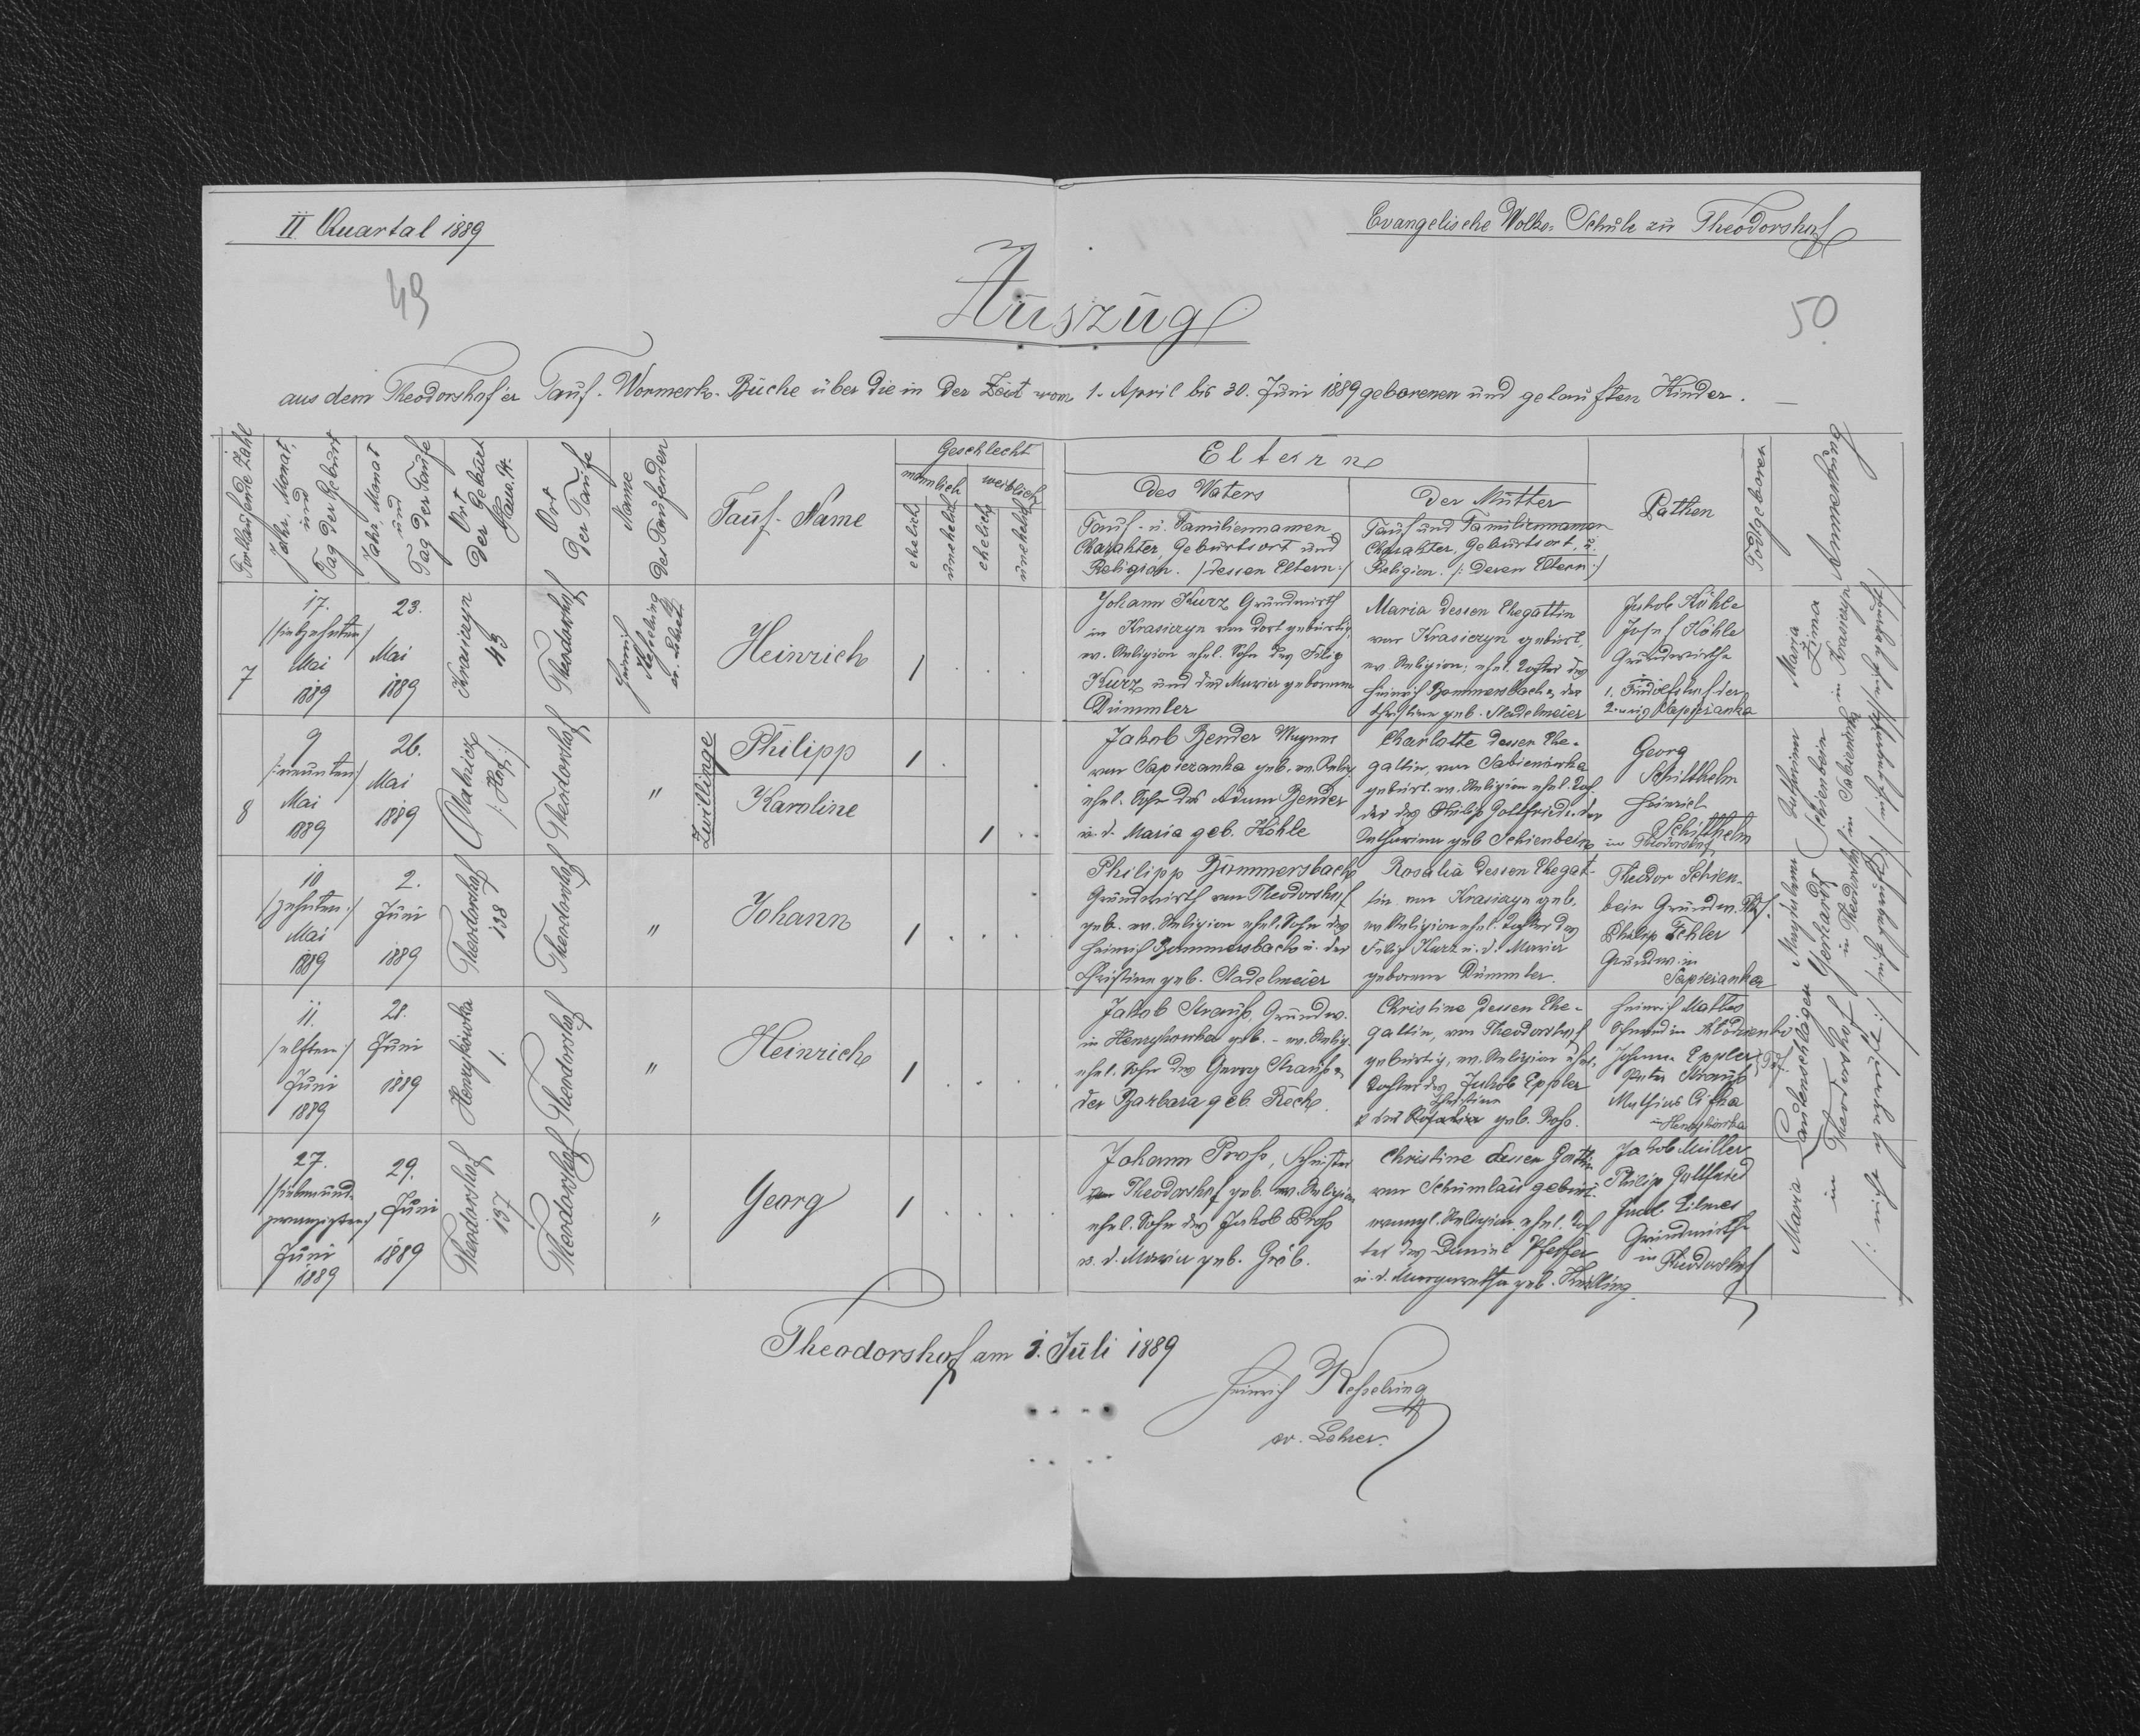 II Quartal 1889
Evangelische Volks-Schule zu Theodorshof
49
50
Auszug
aus dem Theodorshof'er Tauf-Vormerk-Buche über die in der Zeit vom 1. April bis 30. Juni 1889 geborenen und getauften Kinder.
Fortlaufende Zahl
Jahr, Monat,
und
Tag der Geburt
Jahr, Monat
und
Tag der Taufe
Ort
der Geburt
Haus.N.
Ort
der Taufe
Name
des Taufenden
Tauf-Name
Geschlecht
männlich
weiblich
ehelich
unehelich
ehelich
unehelich
Eltern
Des Vaters
Tauf- u. Familiennamen
Charakter, Geburtsort und
Religion. /:dessen Eltern:/
Der Mutter
Tauf und Familiennamen
Charakter, Geburtsort, u.
Religion. /:deren Eltern:/
Pathen
Todtgeboren
Anmerkung
7
17.
/siebzehnten/
Mai
1889
23.
Mai
1889
Krasiczyn
43
Theodorshof
Heinrich
Keßelring
ev. Lehrer
Heinrich
1
Johann Kurz Grundwirth
in Krasiczyn von dort gebürtig,
ev. Religion ehel. Sohn des Filip
Kurz und der Maria geborenen
Dümmler
Maria dessen Ehegattin
von Krasiczyn gebürt,
ev. Religion; ehel. Tochter des
Heinrich Bommersbach u. der
Christine geb. Stadelmeier
Jakob Köhle
Josef Köhle
Grundwirthe
Maria
Zima
in Krasiczyn
8
9
/:neunten/
Mai
1889
26.
Mai
1889
/:Hof:/
Theodorshof
"
Zwillinge
Philipp
1
Karoline
1
Jakob Bender
von Sapiezanka geb. ev. Relig
ehel. Sohn des Adam Bender
u. d. Maria geb. Köhle
Charlotte dessen Ehe-
gattin, von Sabieniowka
gebürt. ev. Religion ehel. Toch
ter des Philip Gottfried u. der
Katharina geb Schienbein
Georg
Schilthelm
Heinrich
Schilthelm
in Theodorshof
Katharina
Schienbein
10
/zehnten:/
Mai
1889
2.
Juni
1889
Theodorshof
138
Theodorshof
"
Johann
1
Philipp Bommersbach
Grundwirth von Theodorshof
geb. ev. Religion ehel. Sohn des
Heinrich Bommersbach u. der
Christine geb. Stadelmeier
Rosalia dessen Ehegat-
tin von Krasiczyn geb.
ev. Religion ehel. Tochter des
Filip Kurz u. d. Maria
geborene Dümmler.
Theodor Schien-
bein Grundw.
Philip Echler
Grundw. in
Sapiezanka
Gerhardt
in Theodorshof
11.
/elften:/
Juni
1889
28.
Juni
1889
Henrykówka
1.
Theodorshof
"
Heinrich
1
Jakob Strauß, Grundw.
in Henrykowka geb. - ev. Relig.
ehel. Sohn des Georg Strauß u
der Barbara geb. Koch.
Christine, dessen Ehe-
gattin, von Theodorshof
gebürtig, ev. Religion ehel.
Tochter des Jakob Eppler
Christina
geb. Roß.
Heinrich Mattes
Johann Eppler
Peter Strauß
Henrykówka
27.
/siebenund-
zwanzigsten/
Juni
1889
29.
Juni
1889
Theodorshof
137
Theodorshof
"
Georg
1
Johann Proß, Schuster
Theodorshof geb. ev. Religion
ehel. Sohn des Jakob Proß
u. d. Maria geb. Gröb.
Christine dessen Gattin
von Schumlau gebürt.
evangl. Religion, ehel. Toch
ter des Daniel Pfeiffer
u. d. Margaretha geb.
Jakob Müller
Philip Gottfried
Grundwirthe
in Theodorshof
Maria Lautenschläger
in Theodorshof
Theodorshof am 1. Juli 1889
Heinrich Keßelring
ev. Lehrer.